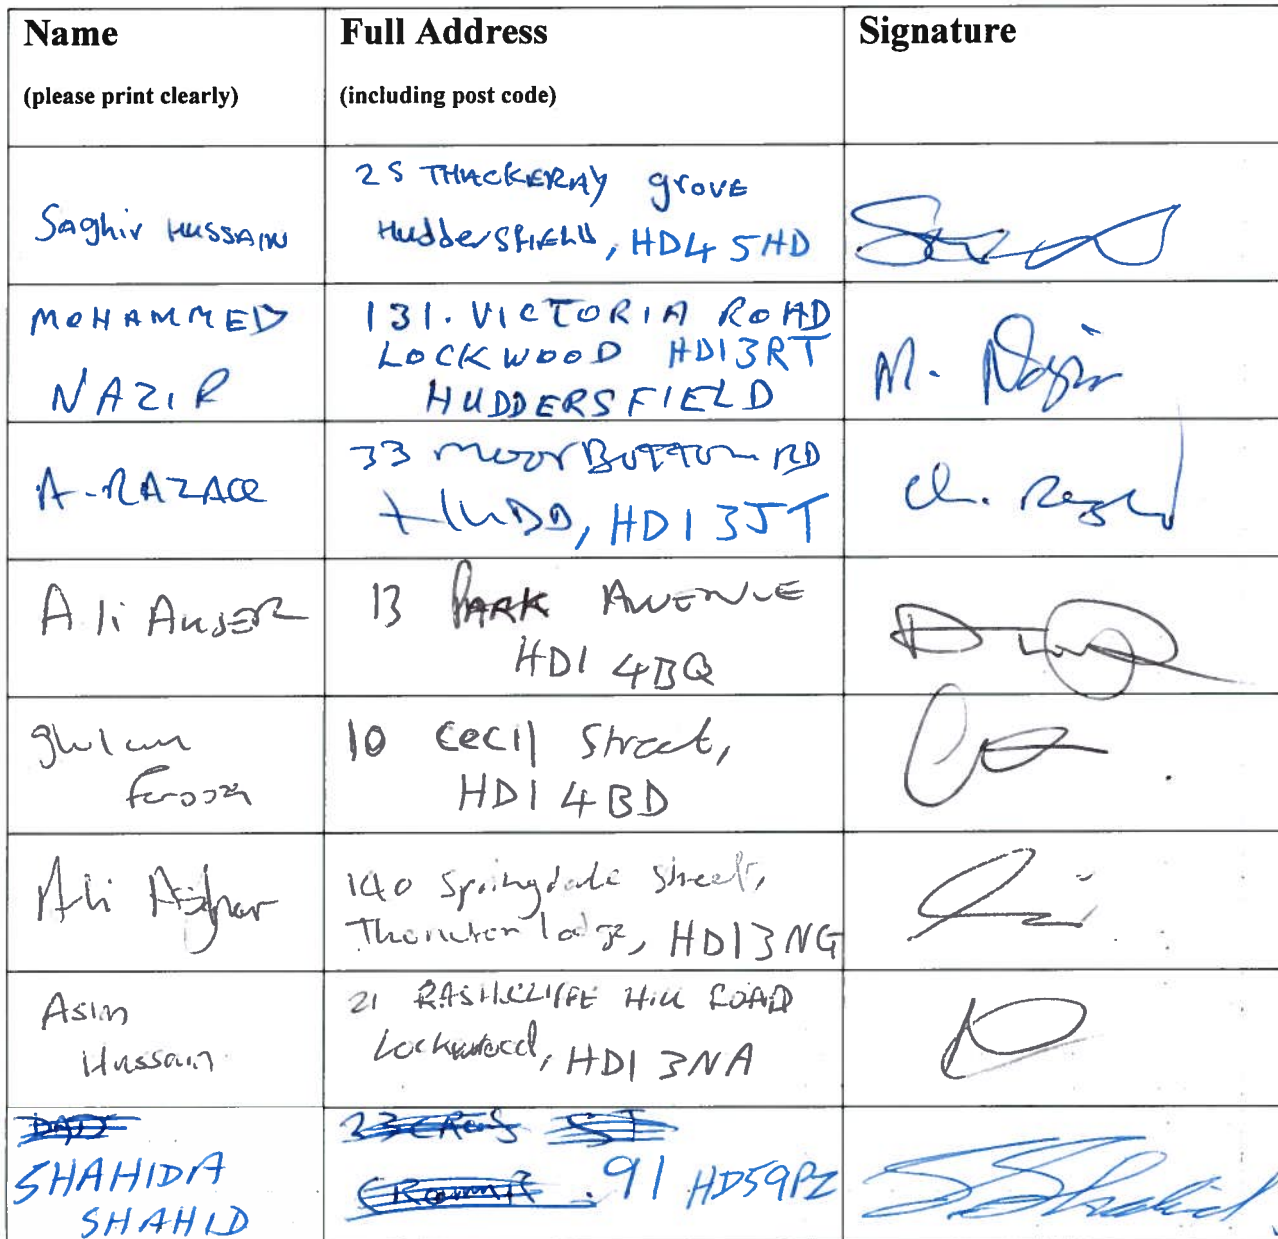 Name
(please print clearly)
Full Address
(including post code)
Signature
Saghir HUSSAIN
25 THACKERAY grove
HuddersFIELD, HD4 5HD
MOHAMMED
NAZIR
131. VICTORIA ROAD
LOCKWOOD HD13RT
HUDDERSFIELD
M. Nazir
A-RAZAQ
33 moor BOTTOM RD
HUDD, HD1 3JT
Ali AUSER
13 PARK AVVENUE
HD1 4BQ
ghulam
Farooq
10 Cecil Street,
HD1 4BD
Ali Asghar
140 Springdale Street,
Thornton lodge, HD13NG
Asim
Hussain
21 RASHCLIFFE Hill ROAD
Lockwood, HD1 3NA
SHAHIDA
SHAHID
91 HD59PZ
S. Shahid